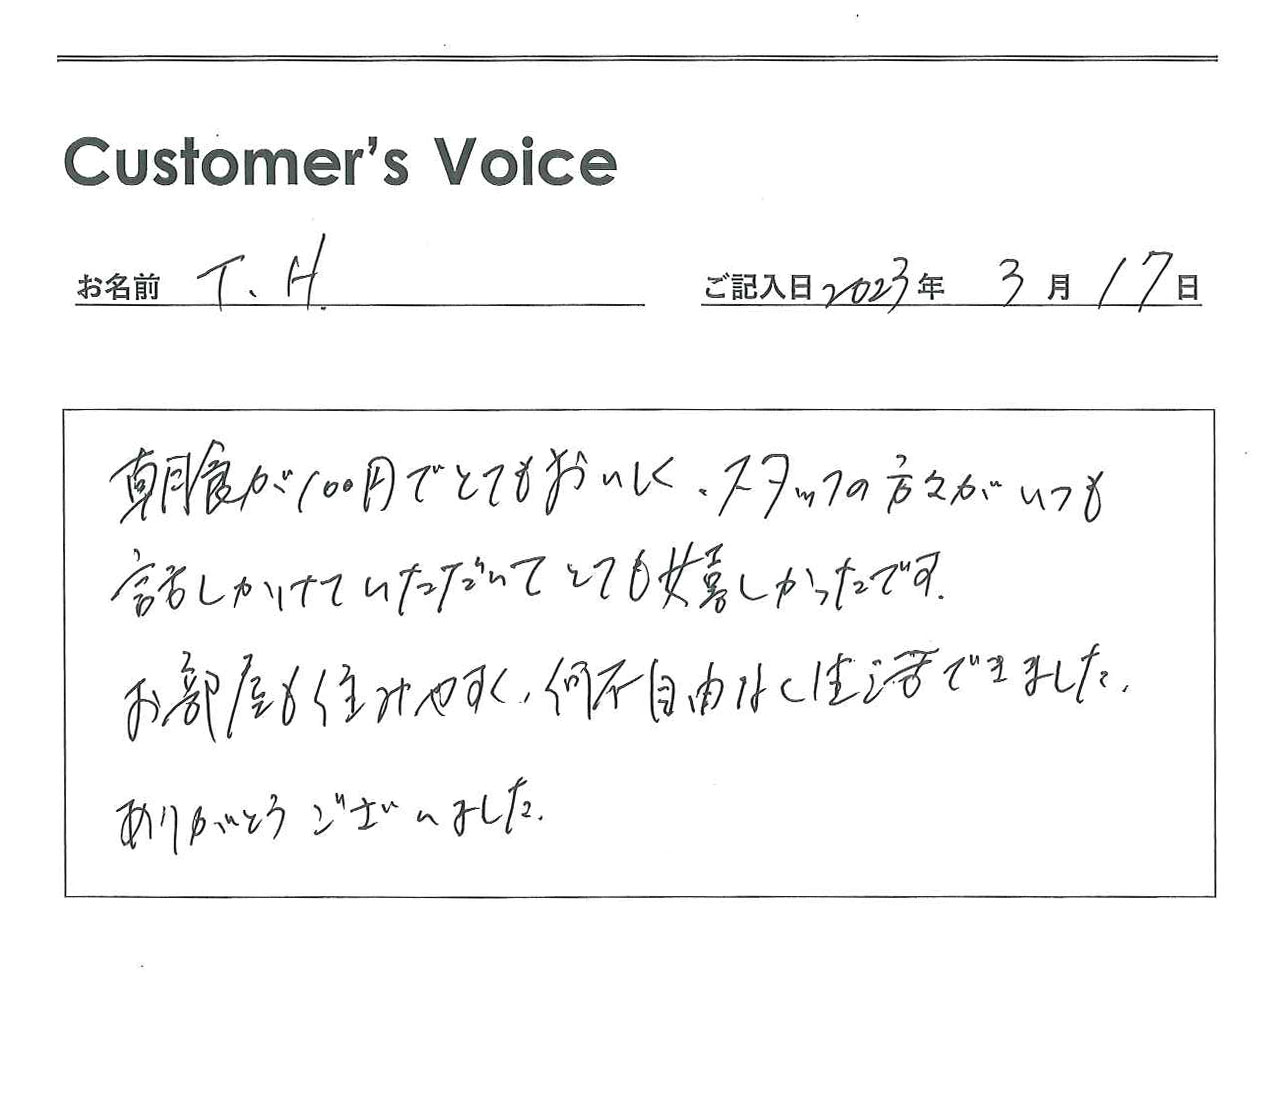 Customer's Voice
お名前 T. H.
ご記入日 2023年 3月 17日
朝食が100円でとてもおいしく、スタッフの方々がいつも
話しかけていただいてとても嬉しかったです。
お部屋も住みやすく、何不自由なく生活できました。
ありがとうございました。